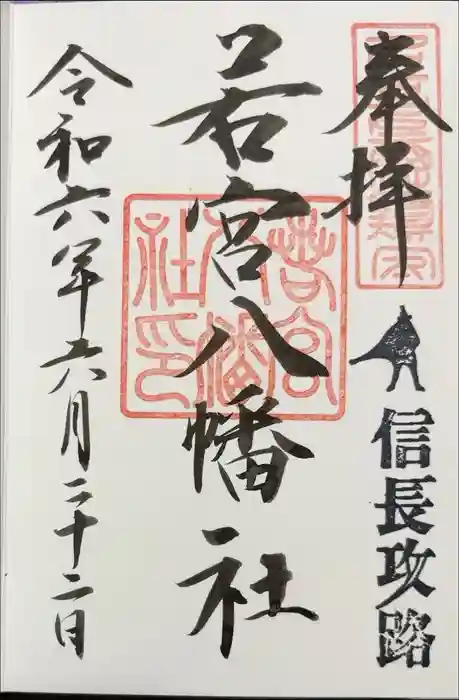 奉拝
信長攻路
若宮八幡社
若宮八幡社印
令和六年六月二十二日